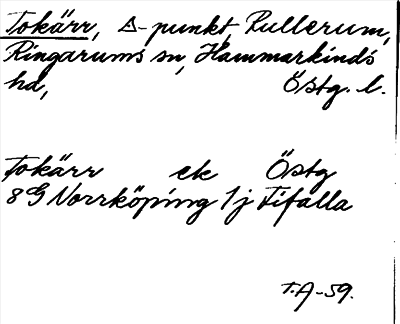 Tokärr, △-punkt, Rullerum,
Ringarums sn, Hammarkinds
hd, Östg. l.
Tokärr ek Östg
8G Norrköping 1j Fifalla
T.A-59.